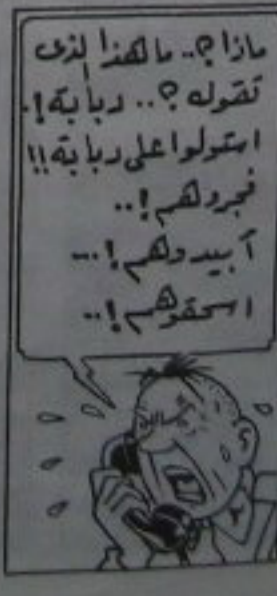 ماذا ؟.. ما هذا الذى
تقول ؟.. دبابة !.
استولوا على دبابة !!
فجروهم !..
أبيدوهم !...
اسحقوهم !..